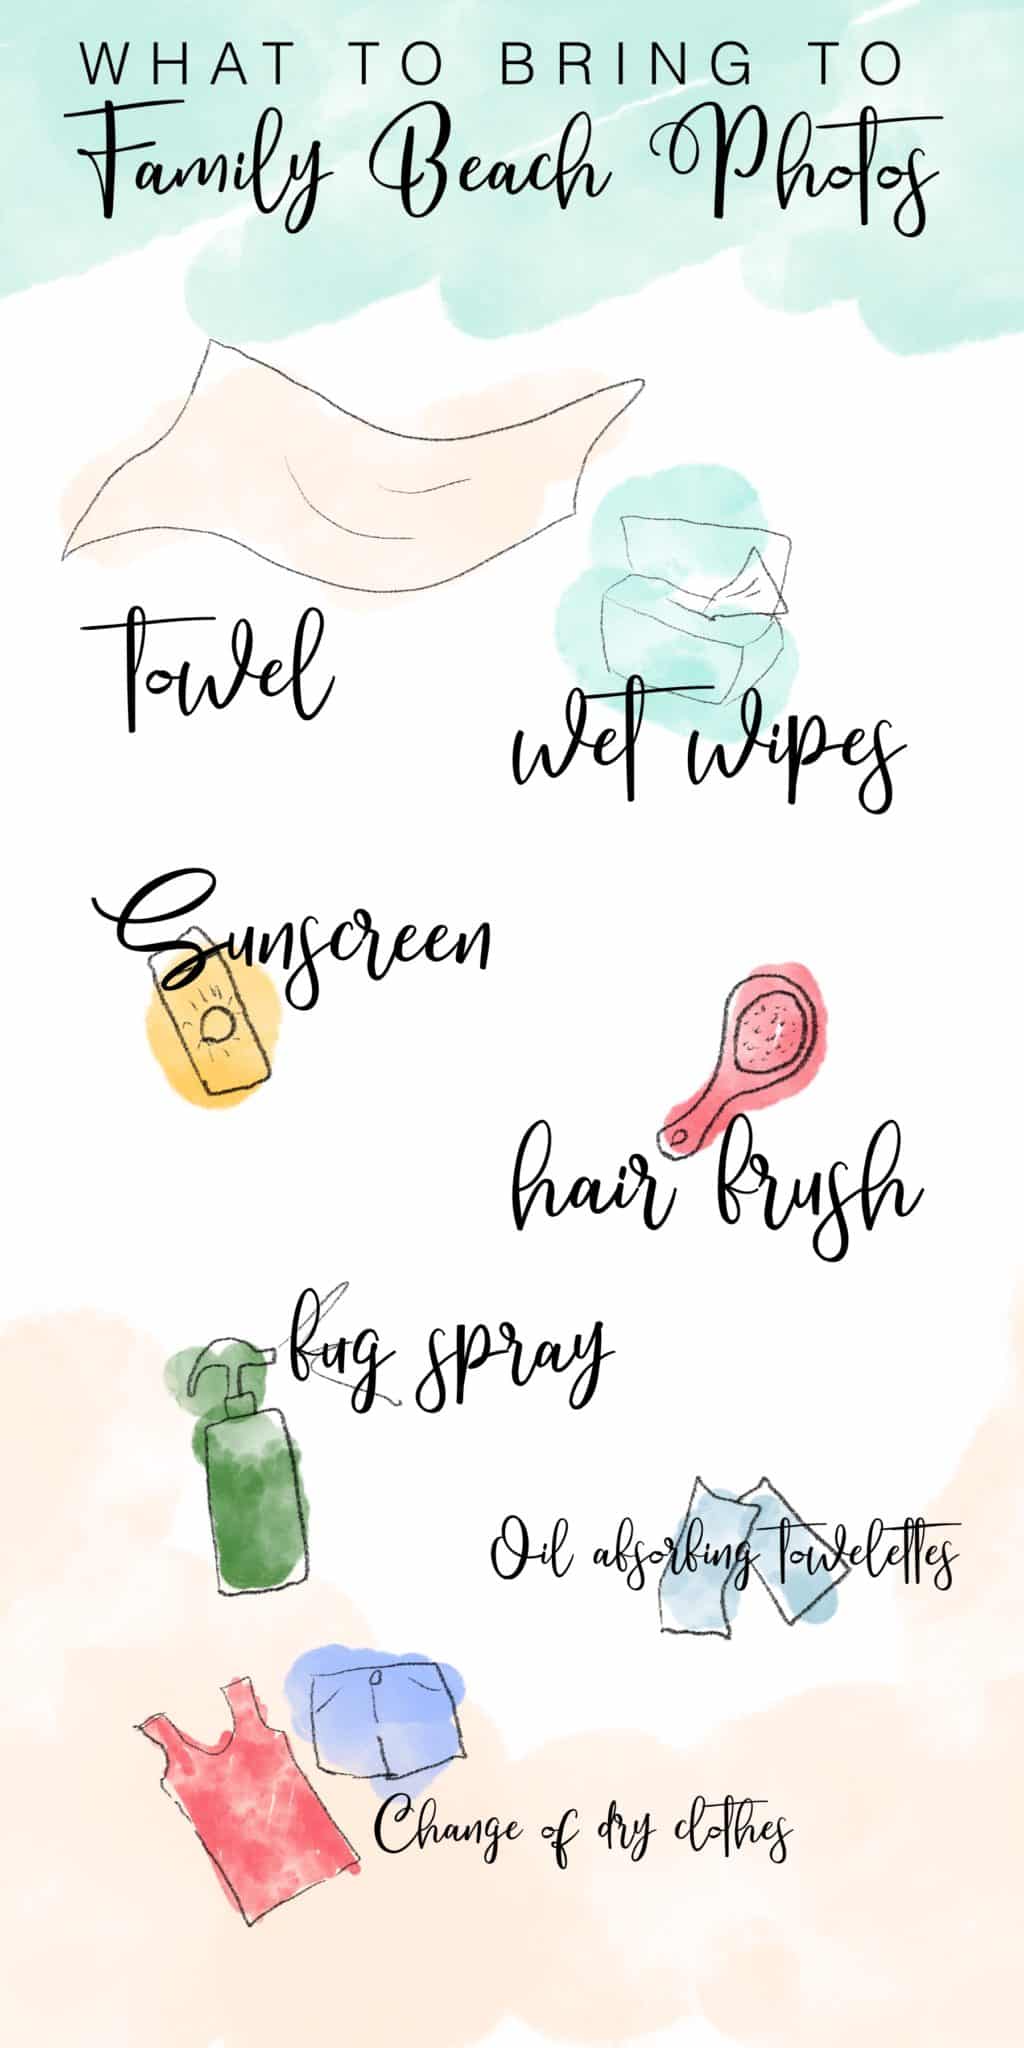 WHAT TO BRING TO
Family Beach Photos
Towel
wet wipes
Sunscreen
hair brush
bug spray
Oil absorbing towelettes
Change of dry clothes